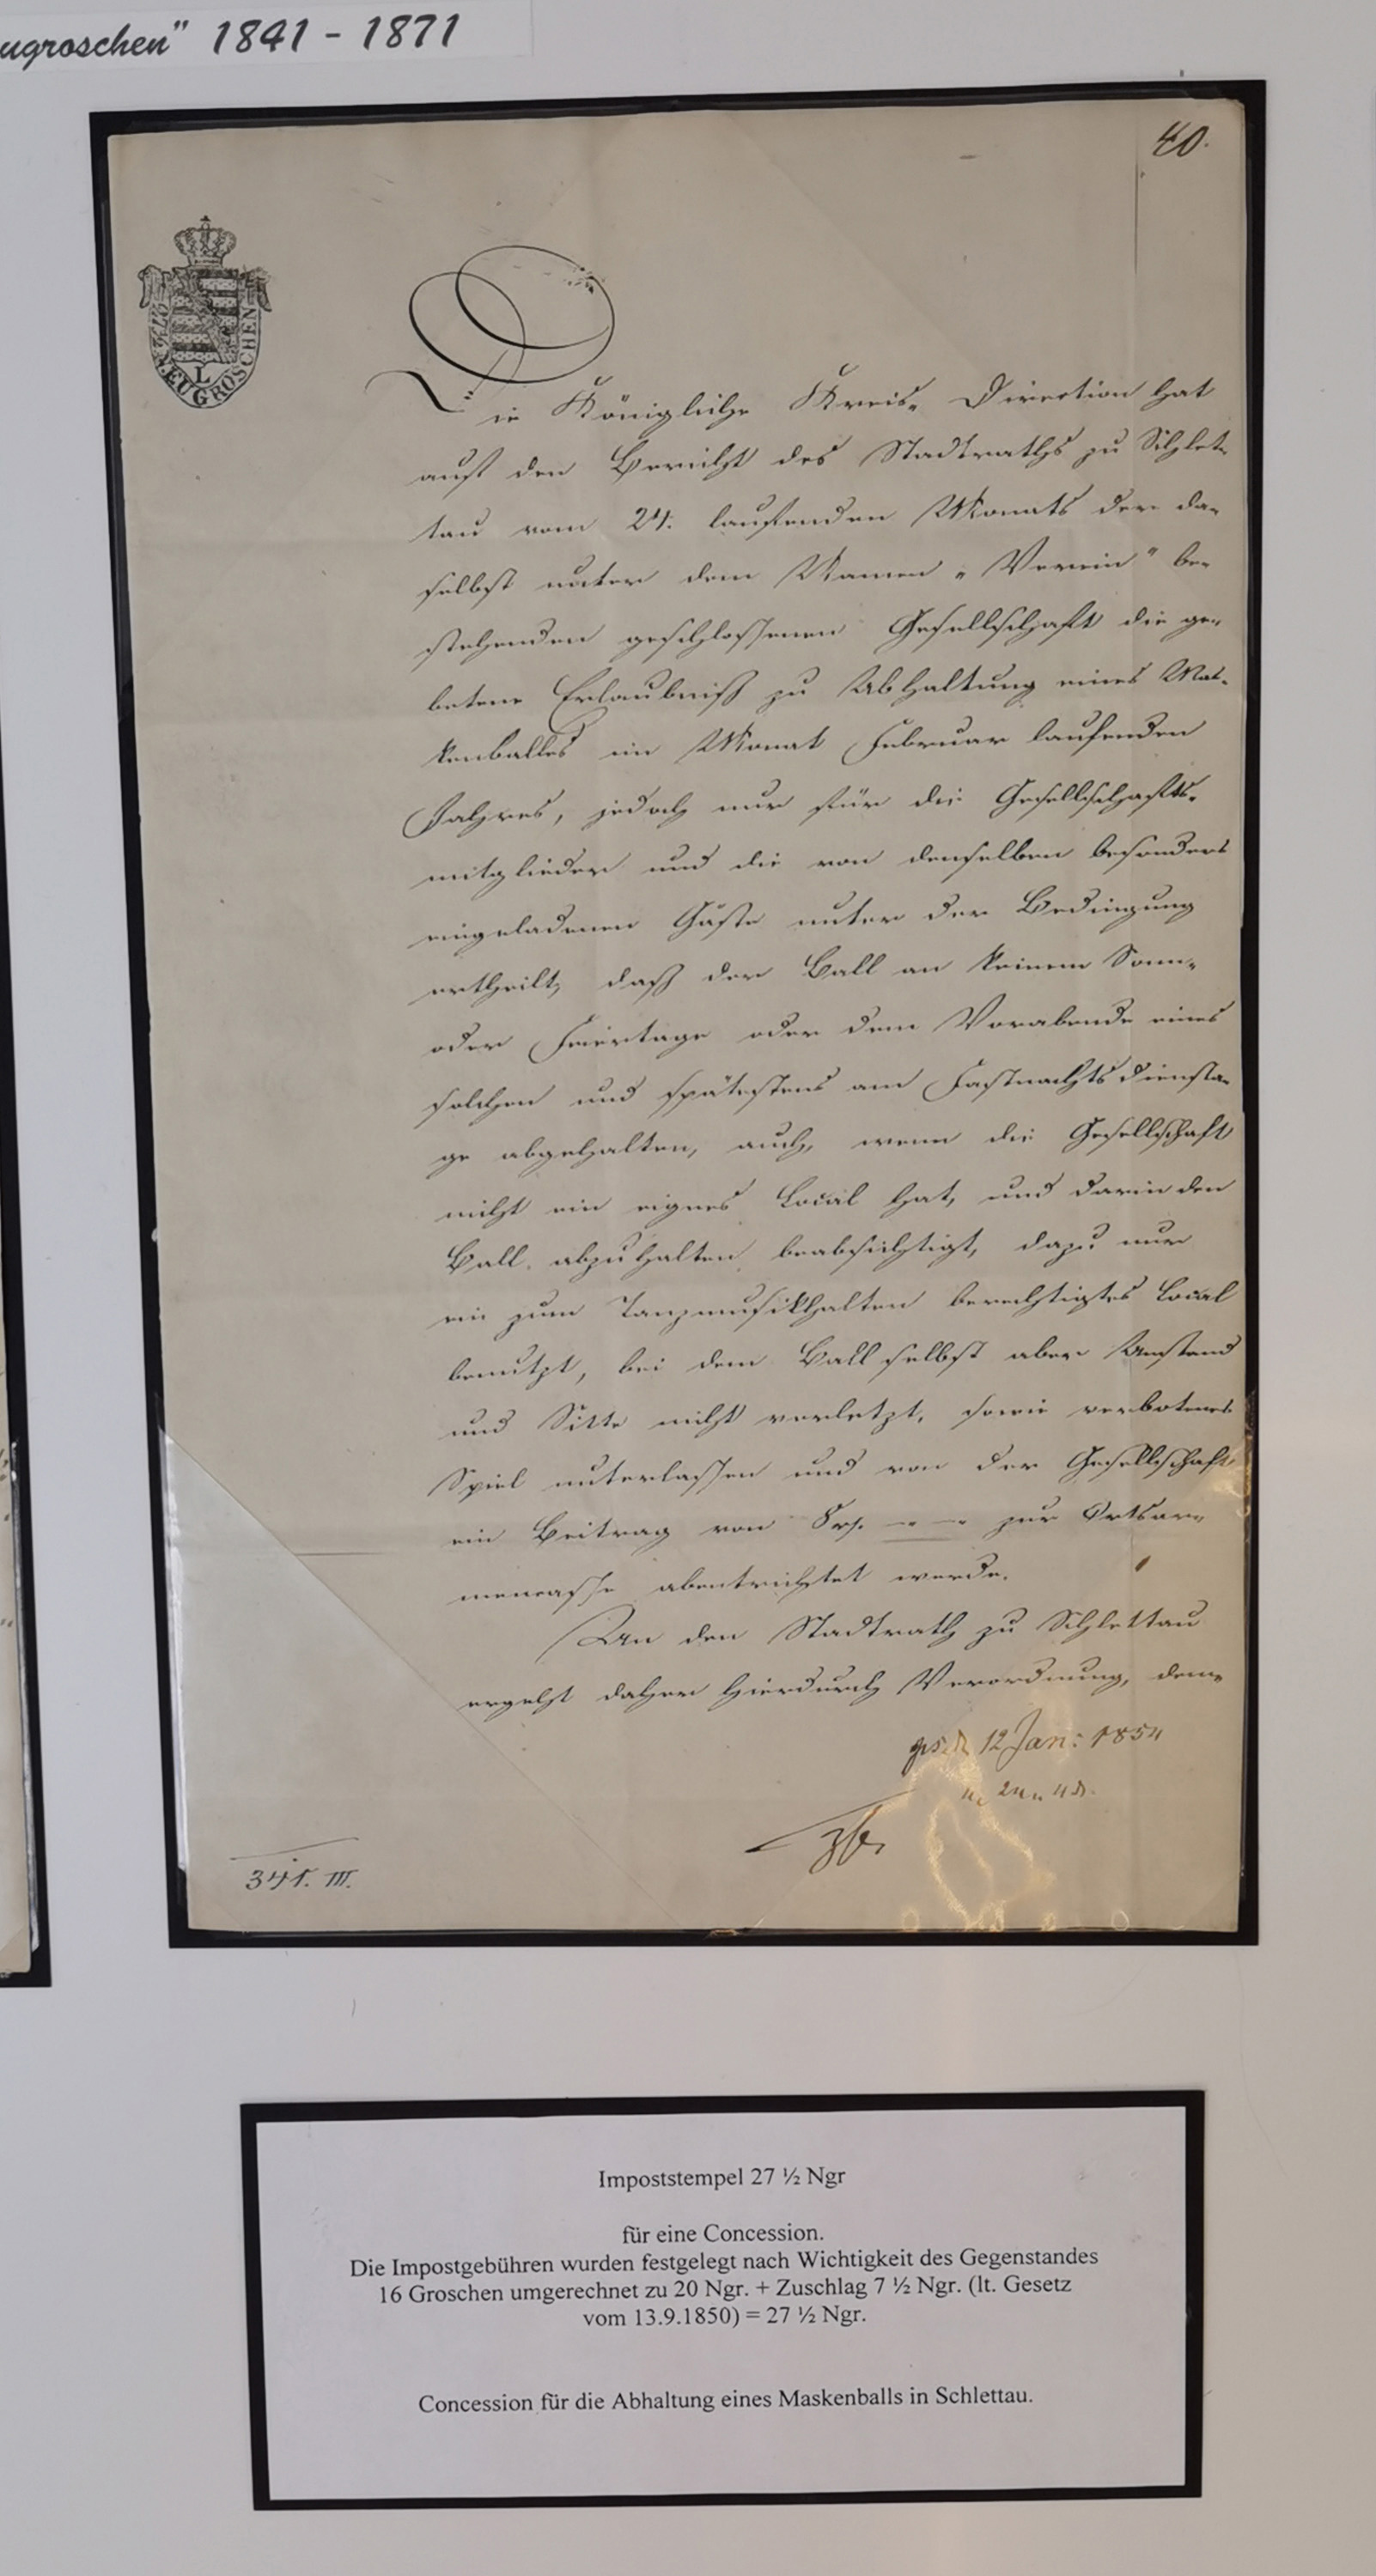 ugroschen" 1841 - 1871
40.
NEUGROSCHEN
L
Die Königliche Kreis- Direction hat
auf den Bericht des Stadtraths zu Schlet-
tau vom 24. laufenden Monats der da-
selbst unter dem Namen „Verein" be-
stehenden geschlossenen Gesellschaft die ge-
betene Erlaubniß zu Abhaltung eines Mas-
kenballes im Monat Februar laufenden
Jahres, jedoch nur für die Gesellschafts-
mitglieder und die von denselben besonders
eingeladenen Gäste unter der Bedingung
ertheilt, daß der Ball an keinem Sonn-
oder Feiertage oder dem Vorabende eines
solchen und spätestens am Fastnachtsdiensta-
ge abgehalten, auch, wenn die Gesellschaft
nicht ein eignes Local hat, und darin den
Ball abzuhalten beabsichtigt, dazu nur
ein zum Tanzmusikhalten berechtigtes Local
benutzt, bei dem Ball selbst aber Anstand
und Sitte nicht verletzt, sowie verbotenes
Spiel unterlassen und von der Gesellschaft
ein Beitrag von zur Ortsar-
mencasse abentrichtet werde.
An den Stadtrath zu Schlettau
ergeht daher hierdurch Verordnung, dem-
12 Jan: 1854
341. III.
Impoststempel 27 ½ Ngr
für eine Concession.
Die Impostgebühren wurden festgelegt nach Wichtigkeit des Gegenstandes
16 Groschen umgerechnet zu 20 Ngr. + Zuschlag 7 ½ Ngr. (lt. Gesetz
vom 13.9.1850) = 27 ½ Ngr.
Concession für die Abhaltung eines Maskenballs in Schlettau.